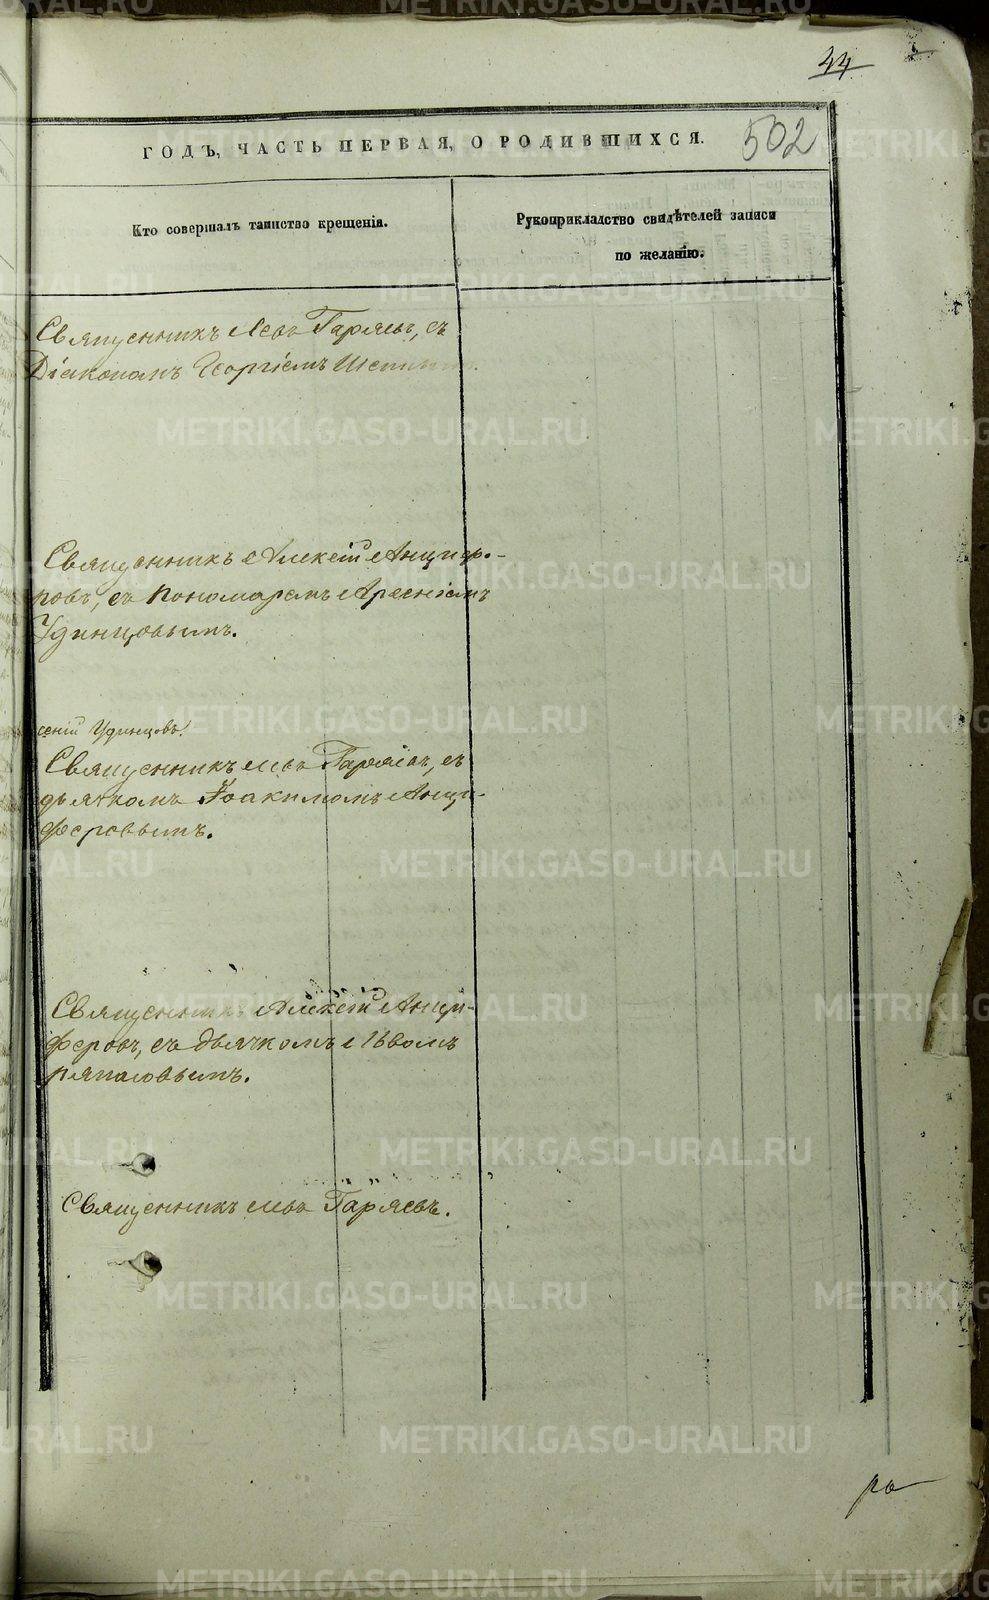 44
502
ГОДЪ, ЧАСТЬ ПЕРВАЯ, О РОДИВШИХСЯ.
Кто совершалъ таинство крещенія.
Рукоприкладство свидѣтелей записи
по желанію.
Священникъ Левъ Гаряевъ, съ
Діакономъ Георгіемъ
Священникъ Алексій Анцифе-
ровъ, съ пономаремъ Арсеніемъ
Удинцовымъ.
сеній Удинцовъ.
Священникъ Левъ Гаряевъ, съ
дьячкомъ Іоакимомъ Анци-
феровымъ.
Священникъ Алексій Анци-
феровъ, съ дьячкомъ Львомъ
Священникъ Левъ Гаряевъ.
METRIKI.GASO-URAL.RU